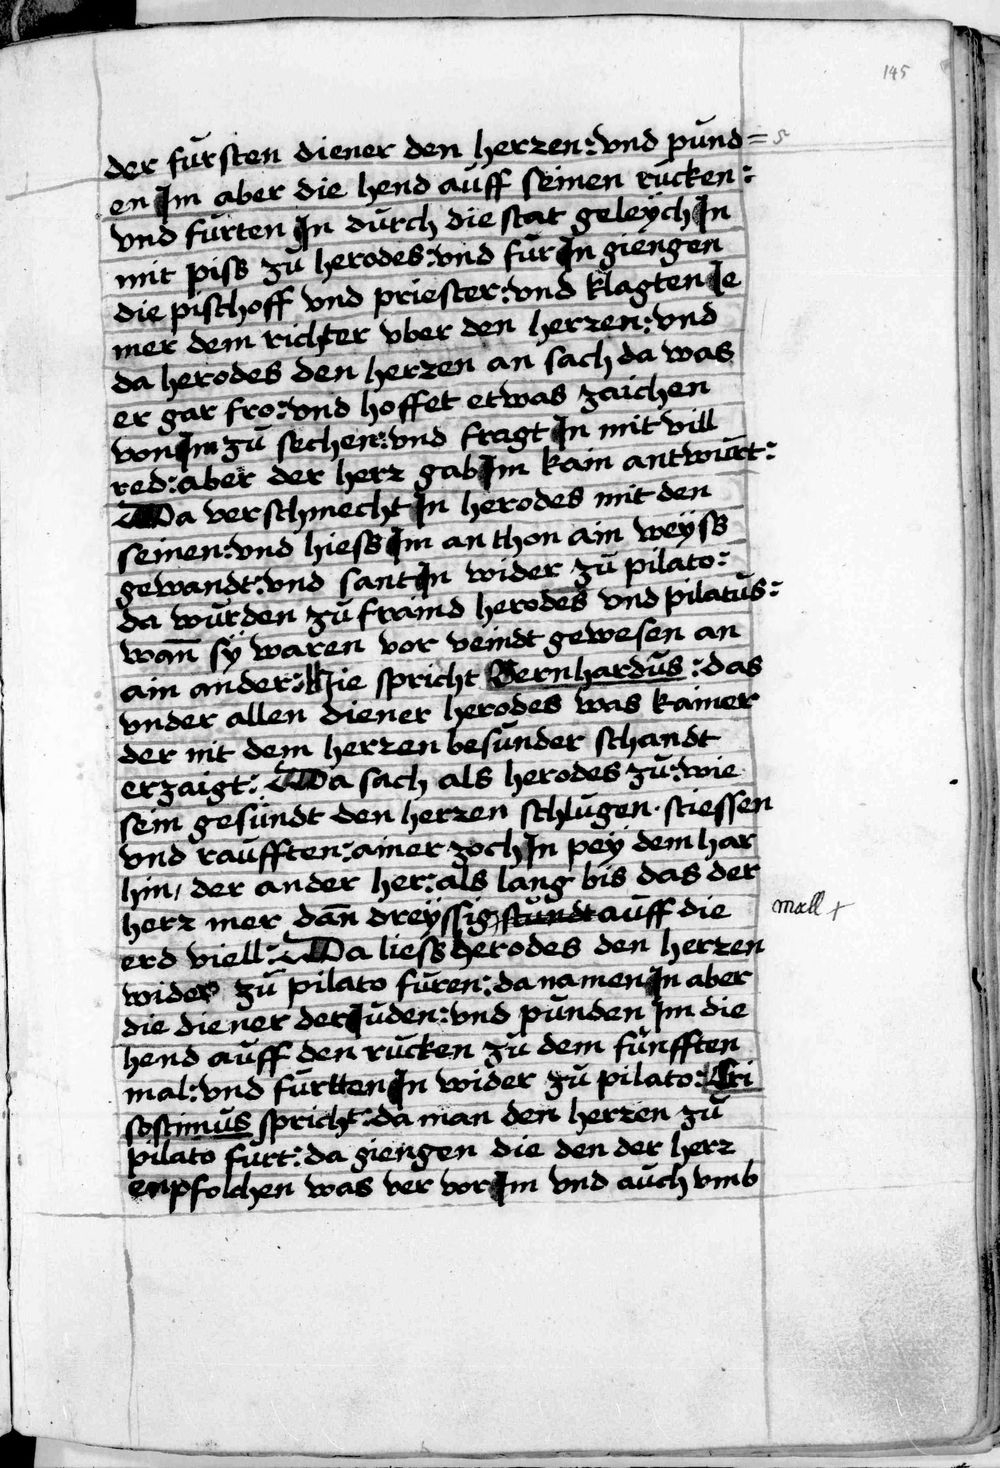 145
der fursten diener den herzen: vnd pund=
en Im aber die hend auff seinen rucken:
vnd furten In durch die stat geleych In
mit piss zu herodes: vnd fur In giengen
die pischoff vnd priester: vnd klagten Ie
mer dem richter vber den herzen: vnd
da herodes den herzen an sach da was
er gar fro: vnd hoffet etwas zaichen
von Im zu sechen: vnd fragt In mit vill
red: aber der herz gab Im kain antwurt:
Da verschmecht In herodes mit den
seinen: vnd hiess Im an thon ain weyss
gewandt: vnd sant In wider zu pilato:
da wurden zu fraind herodes vnd pilatus:
wan̄ sy waren vor veindt gewesen an
ain ander: Hie spricht Bernhardus: das
vnder allen diener herodes was kainer
der nit dem herzen besunder schandt
erzaigt: Da sach als herodes zu: wie
sein gesundt den herzen schlugen · stiessen
vnd raufften: ainer zoch In pey dem har
hin, der ander her: als lang bis das der
herz mer dan̄ dreyssig stundt auff die mall +
erd viell: Da liess herodes den herzen
wider zu pilato furen: da namen In aber
die diener der Iuden: vnd punden Im die
hend auff den rucken zu dem funfften
mal: vnd furtten In wider zu pilato: Cri
sostimus spricht: da man den herzen zu
pilato furt: da giengen die den der herz
enpfolchen was ver vor Im vnd auch vmb